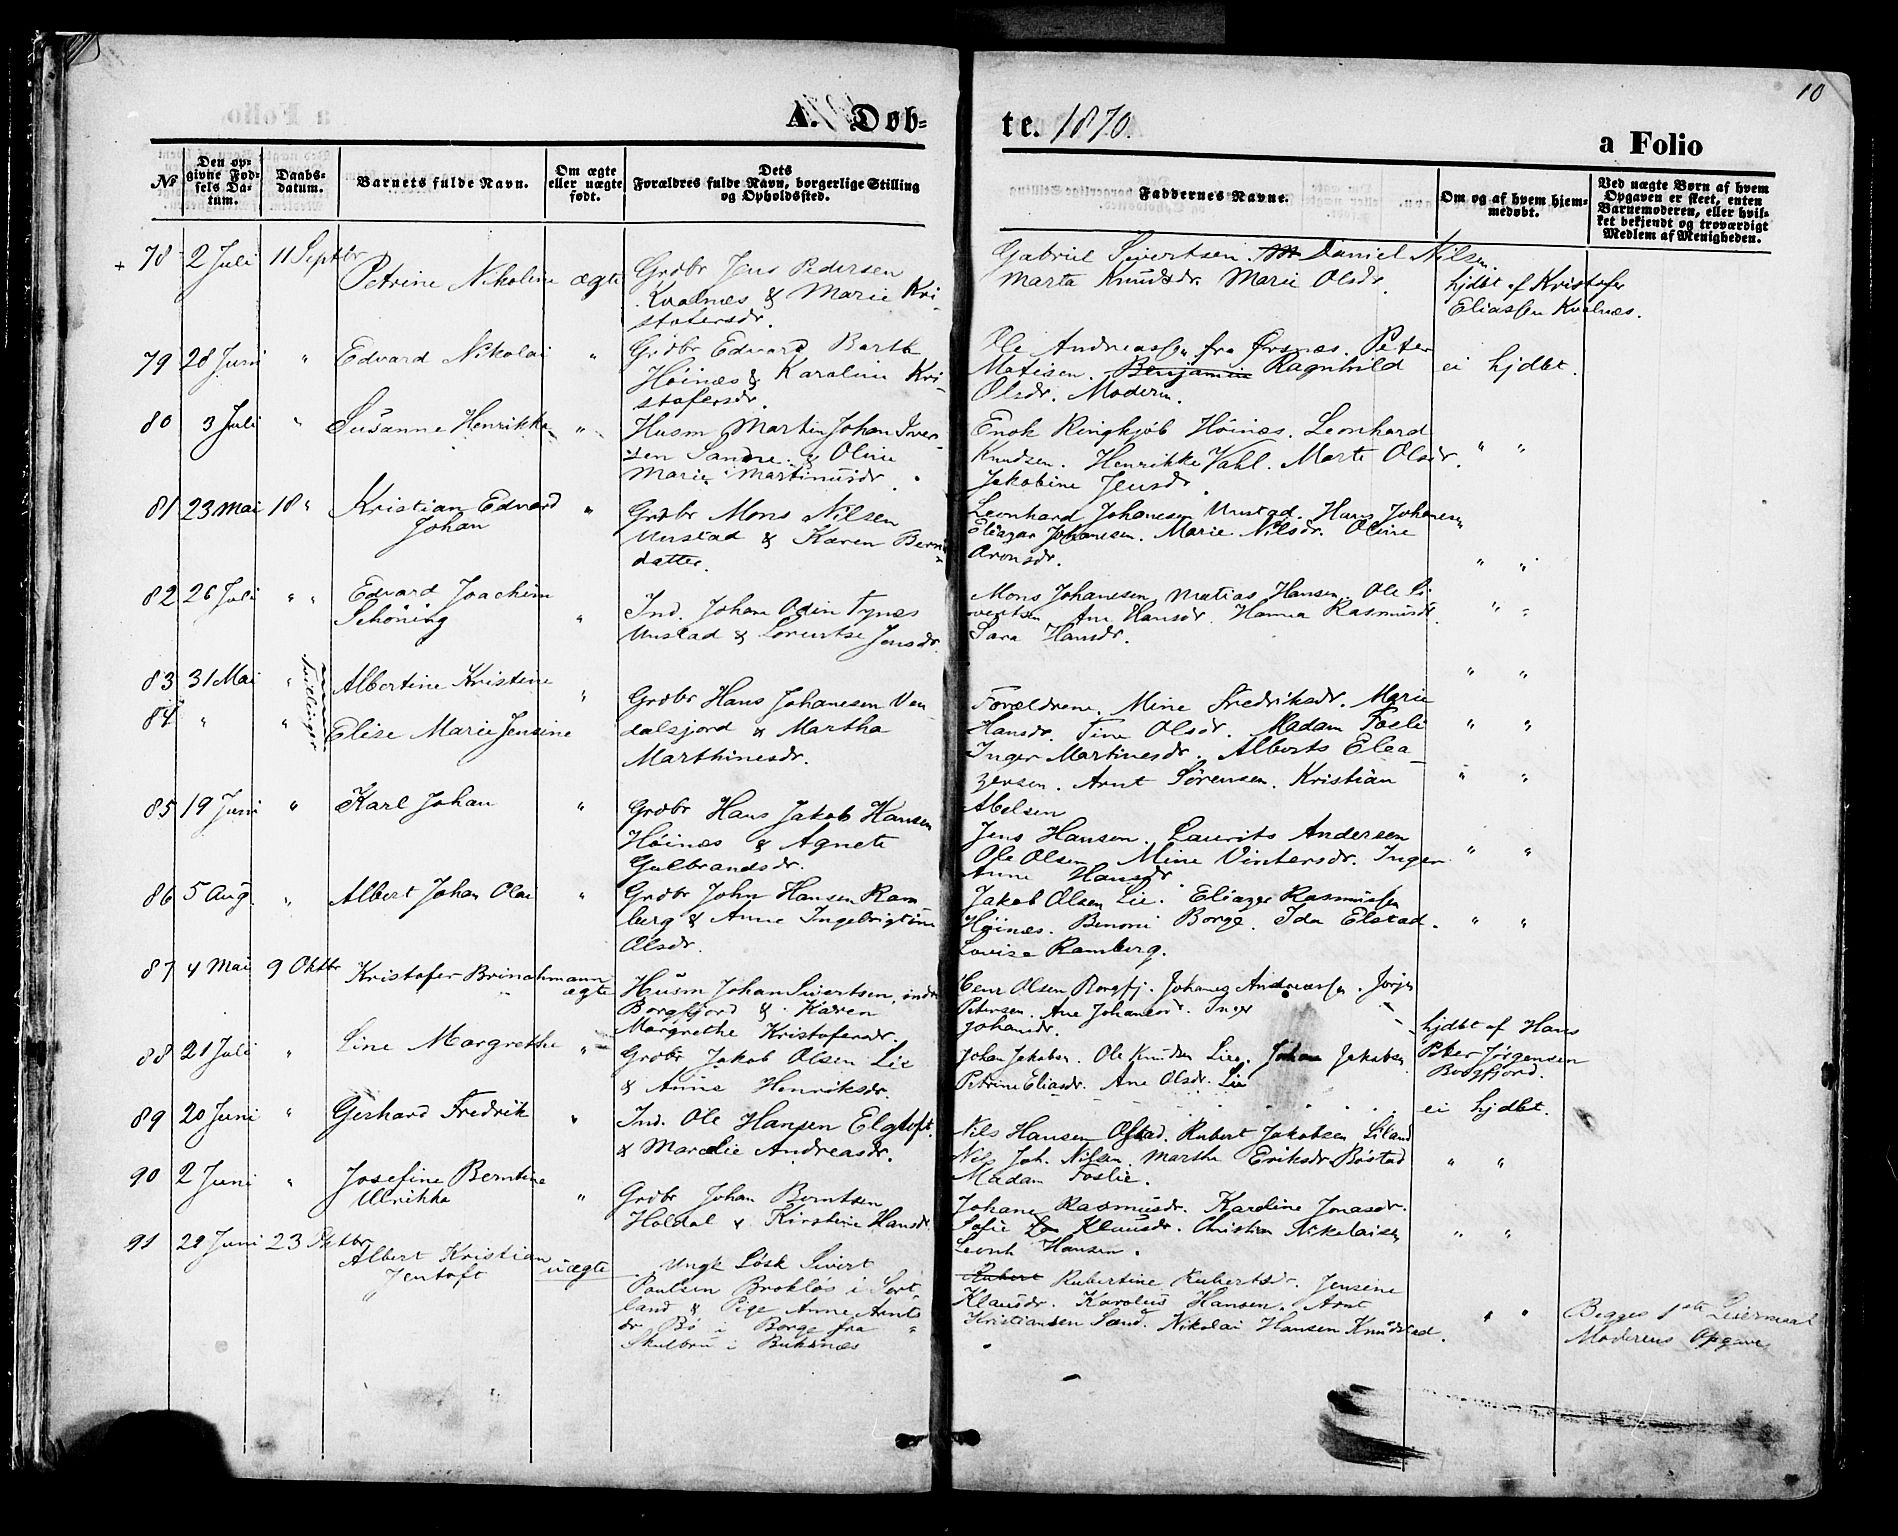 10
A. Døb-
te. 1870.
a Folio
№
Den op-
givne Fød-
sels Da-
tum.
Daabs-
datum.
Barnets fulde Navn.
Om ægte
eller uægte
født.
Dets
Forældres fulde Navn, borgerlige Stilling
og Opholdssted.
Faddernes Navne.
Om og af hvem hjem-
medøbt.
Ved uægte Børn af hvem
Opgaven er skeet, enten
Barnemoderen, eller hvil-
ket bekjendt og troværdigt
Medlem af Menigheden.
+ 78 2 Juli 11 Septbr
Petrine Nikoline ægte
Grdbr Jens Pedersen
Kvalnæs & Marie Kri-
stofersdr.
Gabriel Sivertsen. Daniel Nilsen.
Marta Knudsdr. Marie Olsdr.
hjdbt af Kristofer
Eliassen Kvalnæs.
79 28 Juni " Edvard Nikolai "
Grdbr Edvard Barth
Höinæs & Karoline Kri-
stofersdr.
Ole Andreassen fra Ørsnæs. Peter
Matisen. Benjamin Ragnhild
Olsdr. Modern.
ei hjdbt.
80 3 Juli " Susanne Henrikke "
Husm Martin Johan Iver-
sen Sandre & Oline
Marie Martinusdr.
Enok Ringkjöb Höinæs. Leonhard
Knudsen. Henrikke Vahl. Marte Olsdr.
Jakobine Jensdr.
" "
81 23 Mai 18 " Kristian Edvard
Johan "
Grdbr Mons Nilsen
Unstad & Karen Bernt
datter.
Leonhard Johanesen Unstad. Hans Johanesen
Eleazar Johanesen. Marie Nilsdr. Oline
Aronsdr.
" "
82 26 Juli " " Edvard Joachim
Schöning "
Ind. Johan Odin Tynes
Unstad & Lorentse Jensdr.
Mons Johanesen. Matias Hansen. Ole Si-
vertsen. Ane Hansdr. Hanna Rasmusdr.
Sara Hansdr.
" "
83 31 Mai " Tvillinger Albertine Kristine "
Grdbr Hans Johanesen Ven-
dalsjord & Martha
Marthinesdr.
84 " " Elise Marie Jensine
Forældrene. Mine Fredriksdr. Marie
Hansdr. Tine Olsdr. Madam Foslie
Inger Martinesdr. Alberts Elea-
zersen. Arnt Sörensen. Kristian
Abelsen
" "
" "
85 19 Juni " Karl Johan "
Grdbr Hans Jakob Hansen
Höinæs & Agnete
Gulbrandsdr.
Jens Hansen. Laurits Andersen
Ole Olsen. Mine Vintersdr. Inger
Anne Hansdr.
" "
86 5 Aug. " Albert Johan Olai "
Grdbr John Hansen Ram-
berg & Anne Ingebrigtine
Olsdr.
Jakob Olsen Lie. Eleazer Rasmussen
Höinæs. Benoni Borge. Ida Elstad.
Lovise Ramberg.
" "
87 4 Mai 9 Oktbr Kristofer Brinchmann
ægte
Husm Johan Sivertsen, indre
Borgfjord & Karen
Margrethe Kristofersdr.
Olsen Borgfj. Johanes Andreassen. Jörgen
Petersen. Ane Johansdr. Inger
Johansdr.
hjdbt af Hans
Peter Jörgensen
Borgfjord.
88 21 Juli " Line Margrethe "
Grdbr Jakob Olsen Lie
& Anne Henriksdr.
Johan Jakobsen. Ole Knudsen Lie. Johan Jakobsen
Petrine Eliasdr. Ane Olsdr. Lie
ei hjdbt.
89 20 Juni " Gerhard Fredrik "
Ind. Ole Hansen Elgtoft
& Maralie Andreasdr.
Nils Hansen Ofstad. Rubert Jakobsen Liland
Nils Joh. Nilsen. Marthe Eriksdr Böstad
Madam Foslie.
" "
90 2 Juni " Josefine Berntine
Ulrikke "
Grdbr Johan Berntsen
Holdal & Kirstine Hansdr.
Johane Rasmusdr. Karoline Jonasdr.
Sofie Klausdr. Christian Nikolaisen
Leonh Hansen.
" "
91 29 Juni 23 Oktbr
Albert Kristian
Jentoft uægte
Ungk Lösk Sivert
Paulsen Broklös i Sort-
land & Pige Anne Arnts
dr Bö i Borge fra
Skulbru i Buksnæs
Rubert Rubertine Rubertsdr. Jensine
Klausdr. Karolius Hansen. Arnt
Kristiansen Sand. Nikolai Hansen Knudstad.
" "
Begges 1ste Leiermaal
Moderens Opgave